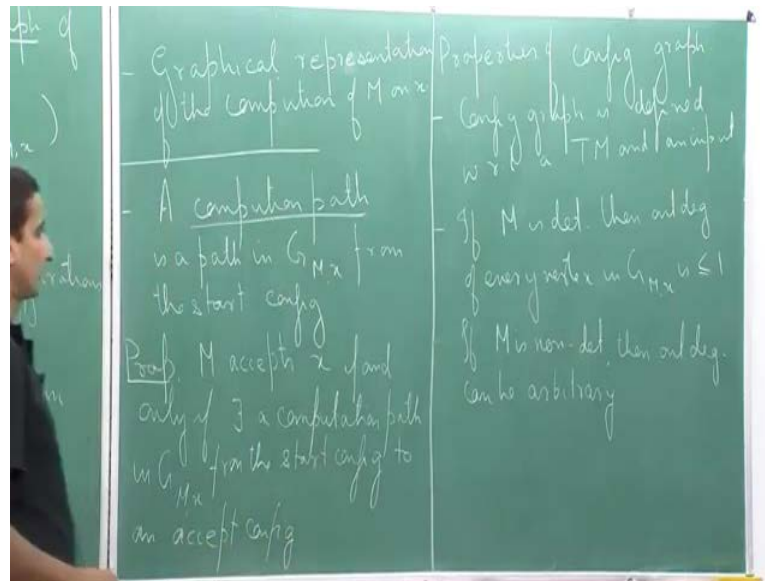 ph of
)
M,x
- Graphical representation
of the compution of M on x
- A compution path
is a path in G_{M,x} from
the start config
Prop. M accepts x if and
only if ∃ a computation path
in G_{M,x} from the start config to
an accept config
Properties of config graph
- Config graph is defined
w.r.t. a TM and an input
- If M is det. then out deg
of every vertex in G_{M,x} is ≤ 1
If M is non-det, then out deg.
can be arbitrary